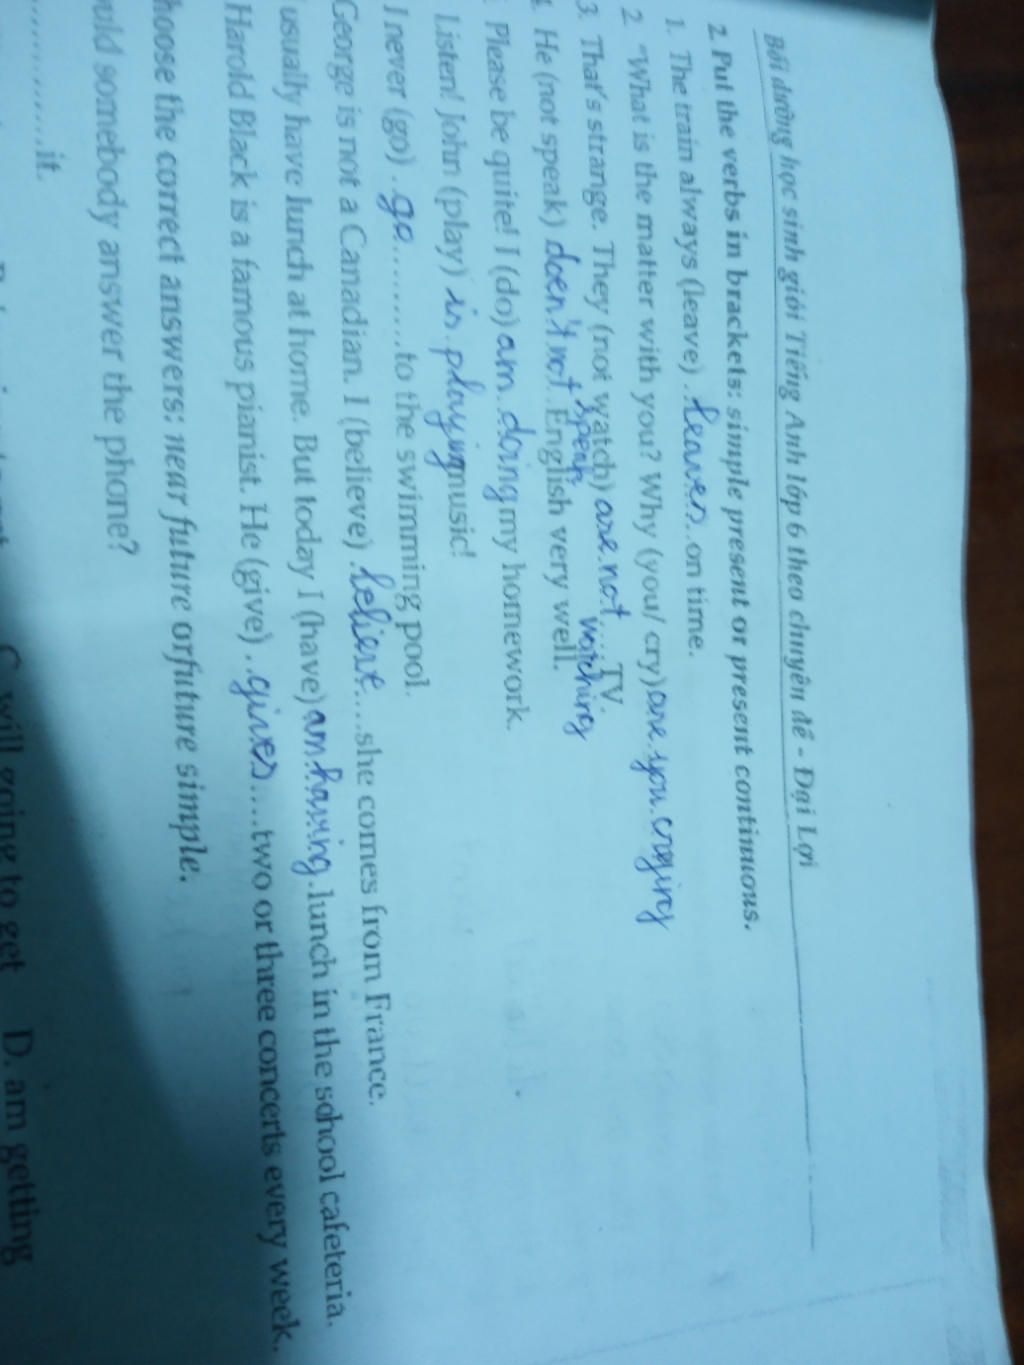 Bồi dưỡng học sinh giỏi Tiếng Anh lớp 6 theo chuyên đề - Đại Lợi
2. Put the verbs in brackets: simple present or present continuous.
1. The train always (leave) .leaves..on time.
2. "What is the matter with you? Why (you/ cry) are.you.crying
3. That's strange. They (not watch) are.not....TV.
watching
4. He (not speak) doen't not..English very well.
speak
Please be quite! I (do) am..doing my homework.
Listen! John (play) is.playing music!
I never (go) ..go.........to the swimming pool.
George is not a Canadian. I (believe) .believe....she comes from France.
usually have lunch at home. But today I (have) am.having.lunch in the school cafeteria.
Harold Black is a famous pianist. He (give) ..gives....two or three concerts every week.
hoose the correct answers: near future orfuture simple.
ould somebody answer the phone?
..............it.
C. will going to get D. am getting